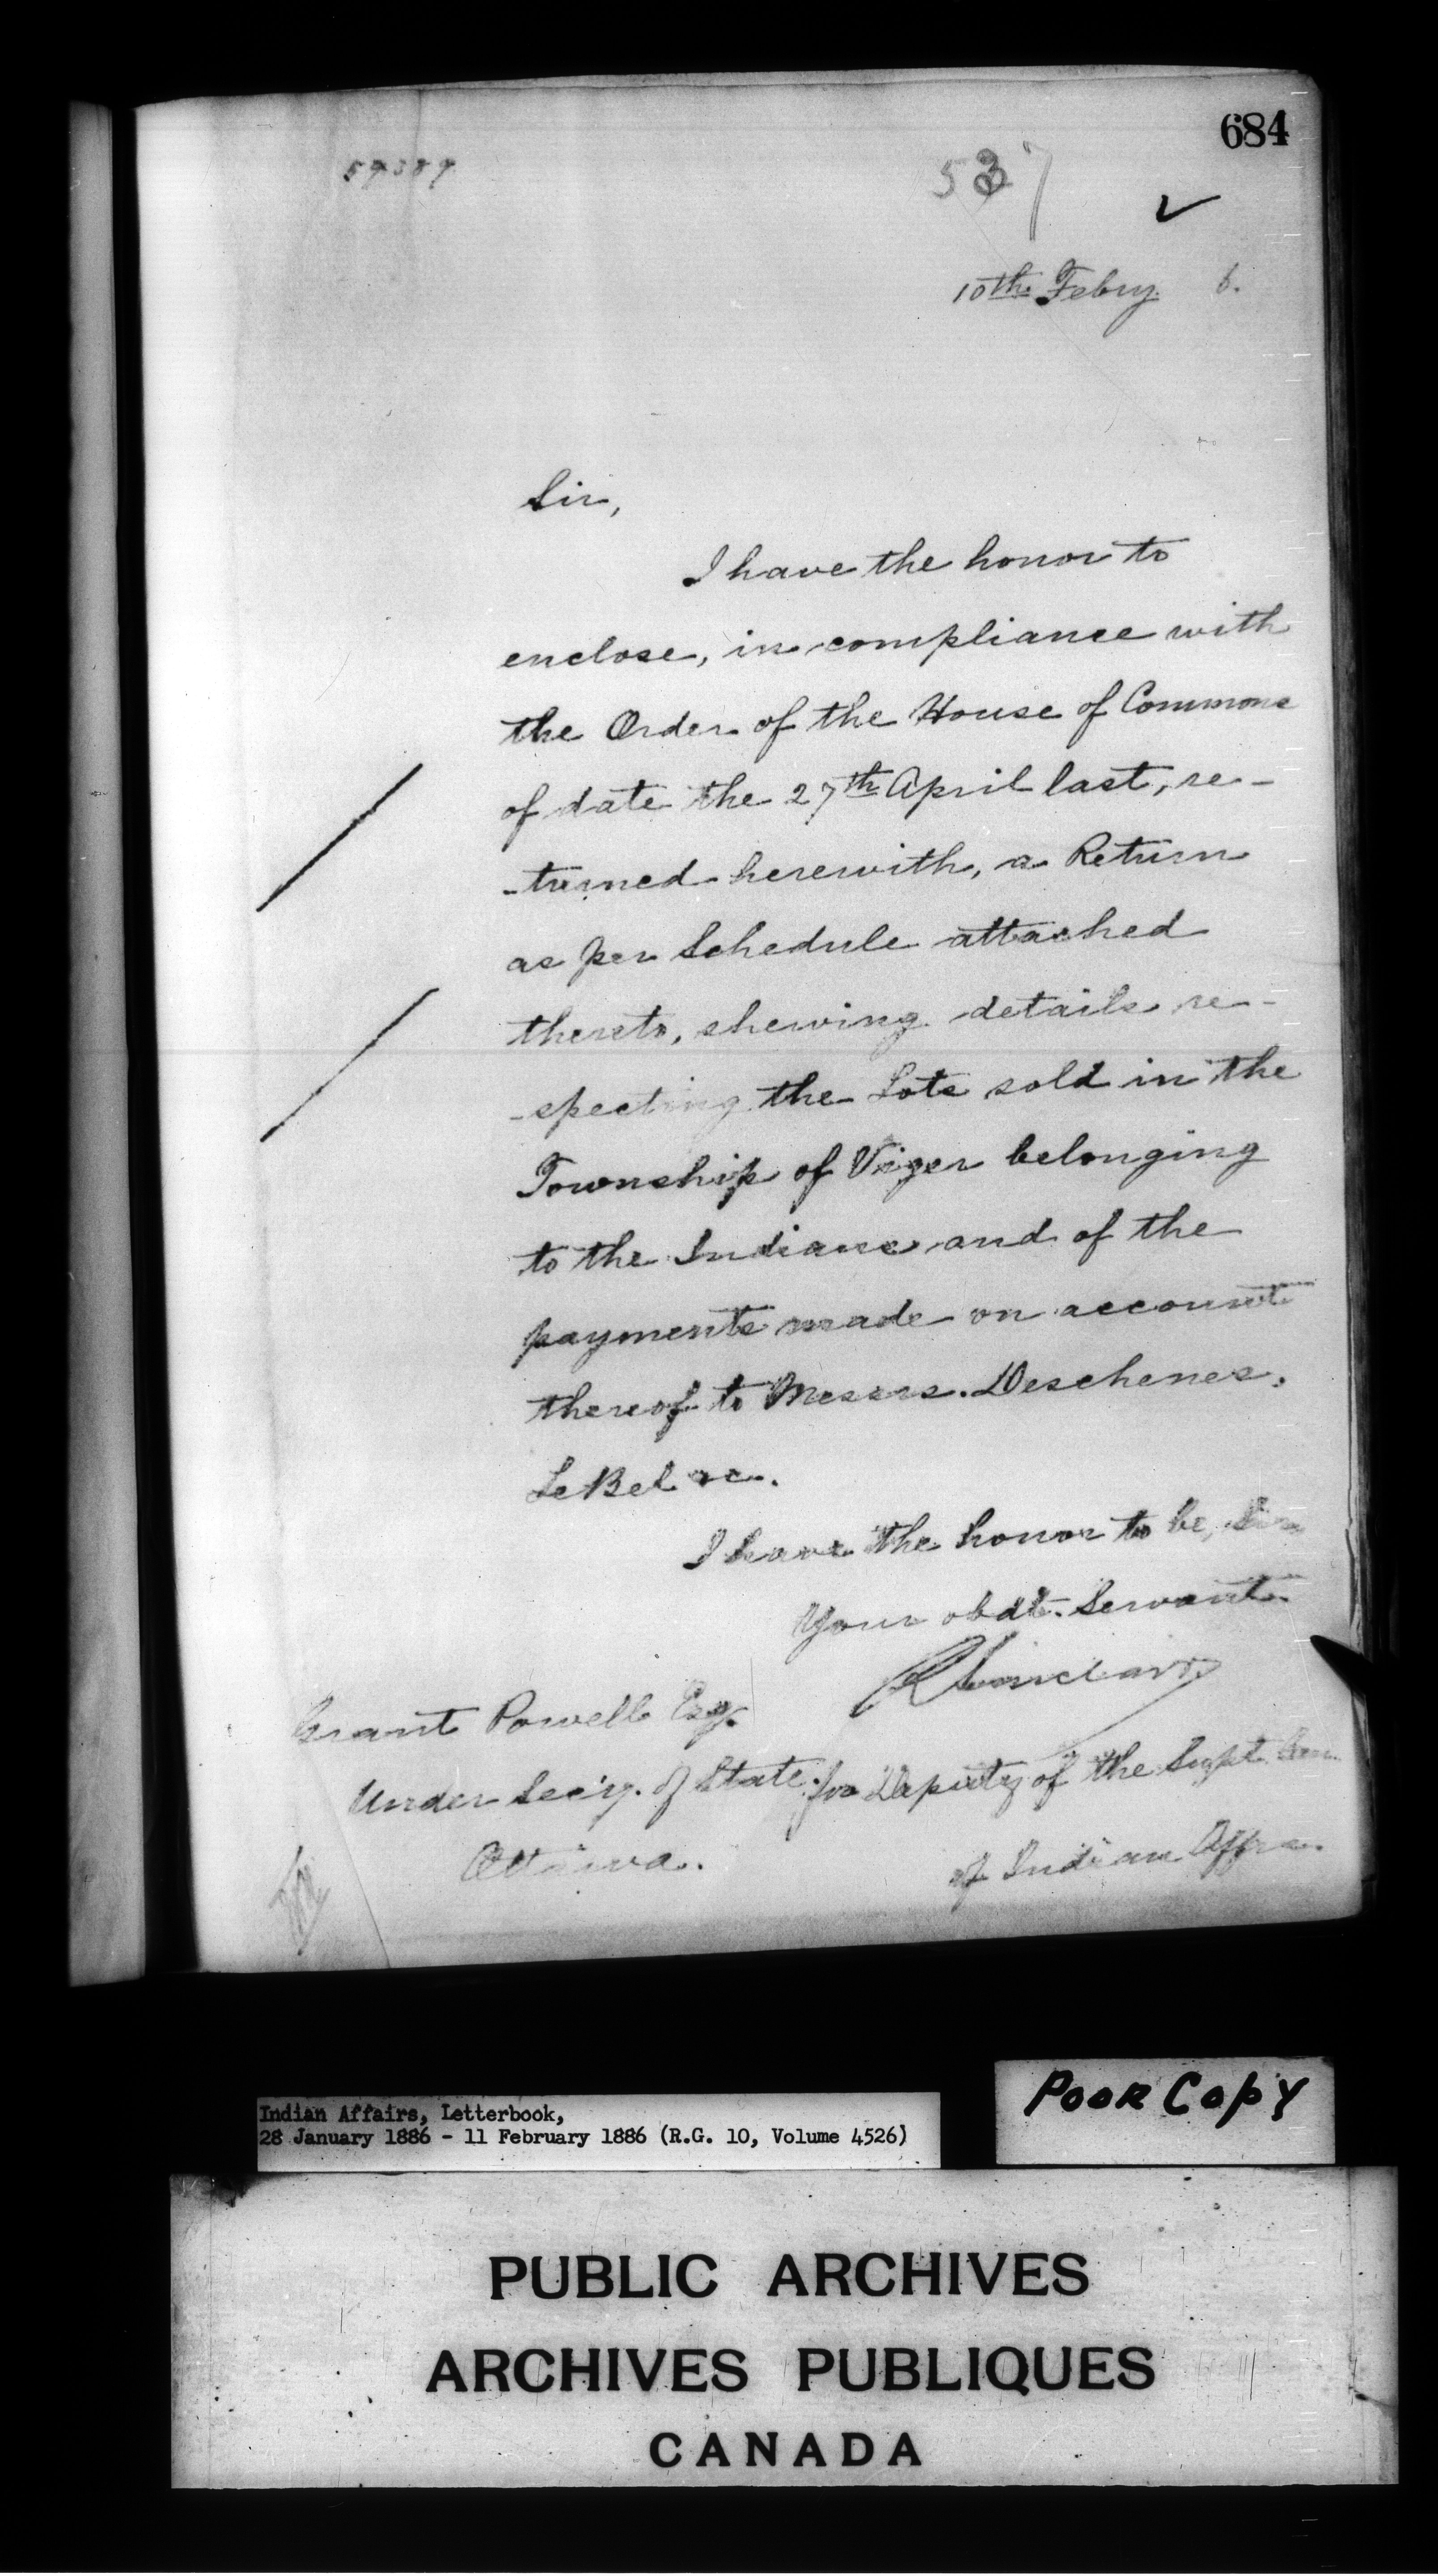 684
59389
537
10th Febry. 6.
Sir,
I have the honor to
enclose, in compliance with
the Order of the House of Commons
of date the 27th April last, re-
-turned herewith, a Return
as per Schedule attached
thereto, shewing details re-
-specting the Lots sold in the
Township of Viger belonging
to the Indians and of the
payments made on account
thereof to Messrs. Deschenes,
LeBel &c.
I have the honor to be, Sir
Your obdt. Servant.
R Sinclair
Grant Powell Esq.
Under Sec'y. of State. for Deputy of the Supt. Gen.
Ottawa. of Indian Affrs.
Indian Affairs, Letterbook,
28 January 1886 - 11 February 1886 (R.G. 10, Volume 4526)
Poor Copy
PUBLIC ARCHIVES
ARCHIVES PUBLIQUES
CANADA